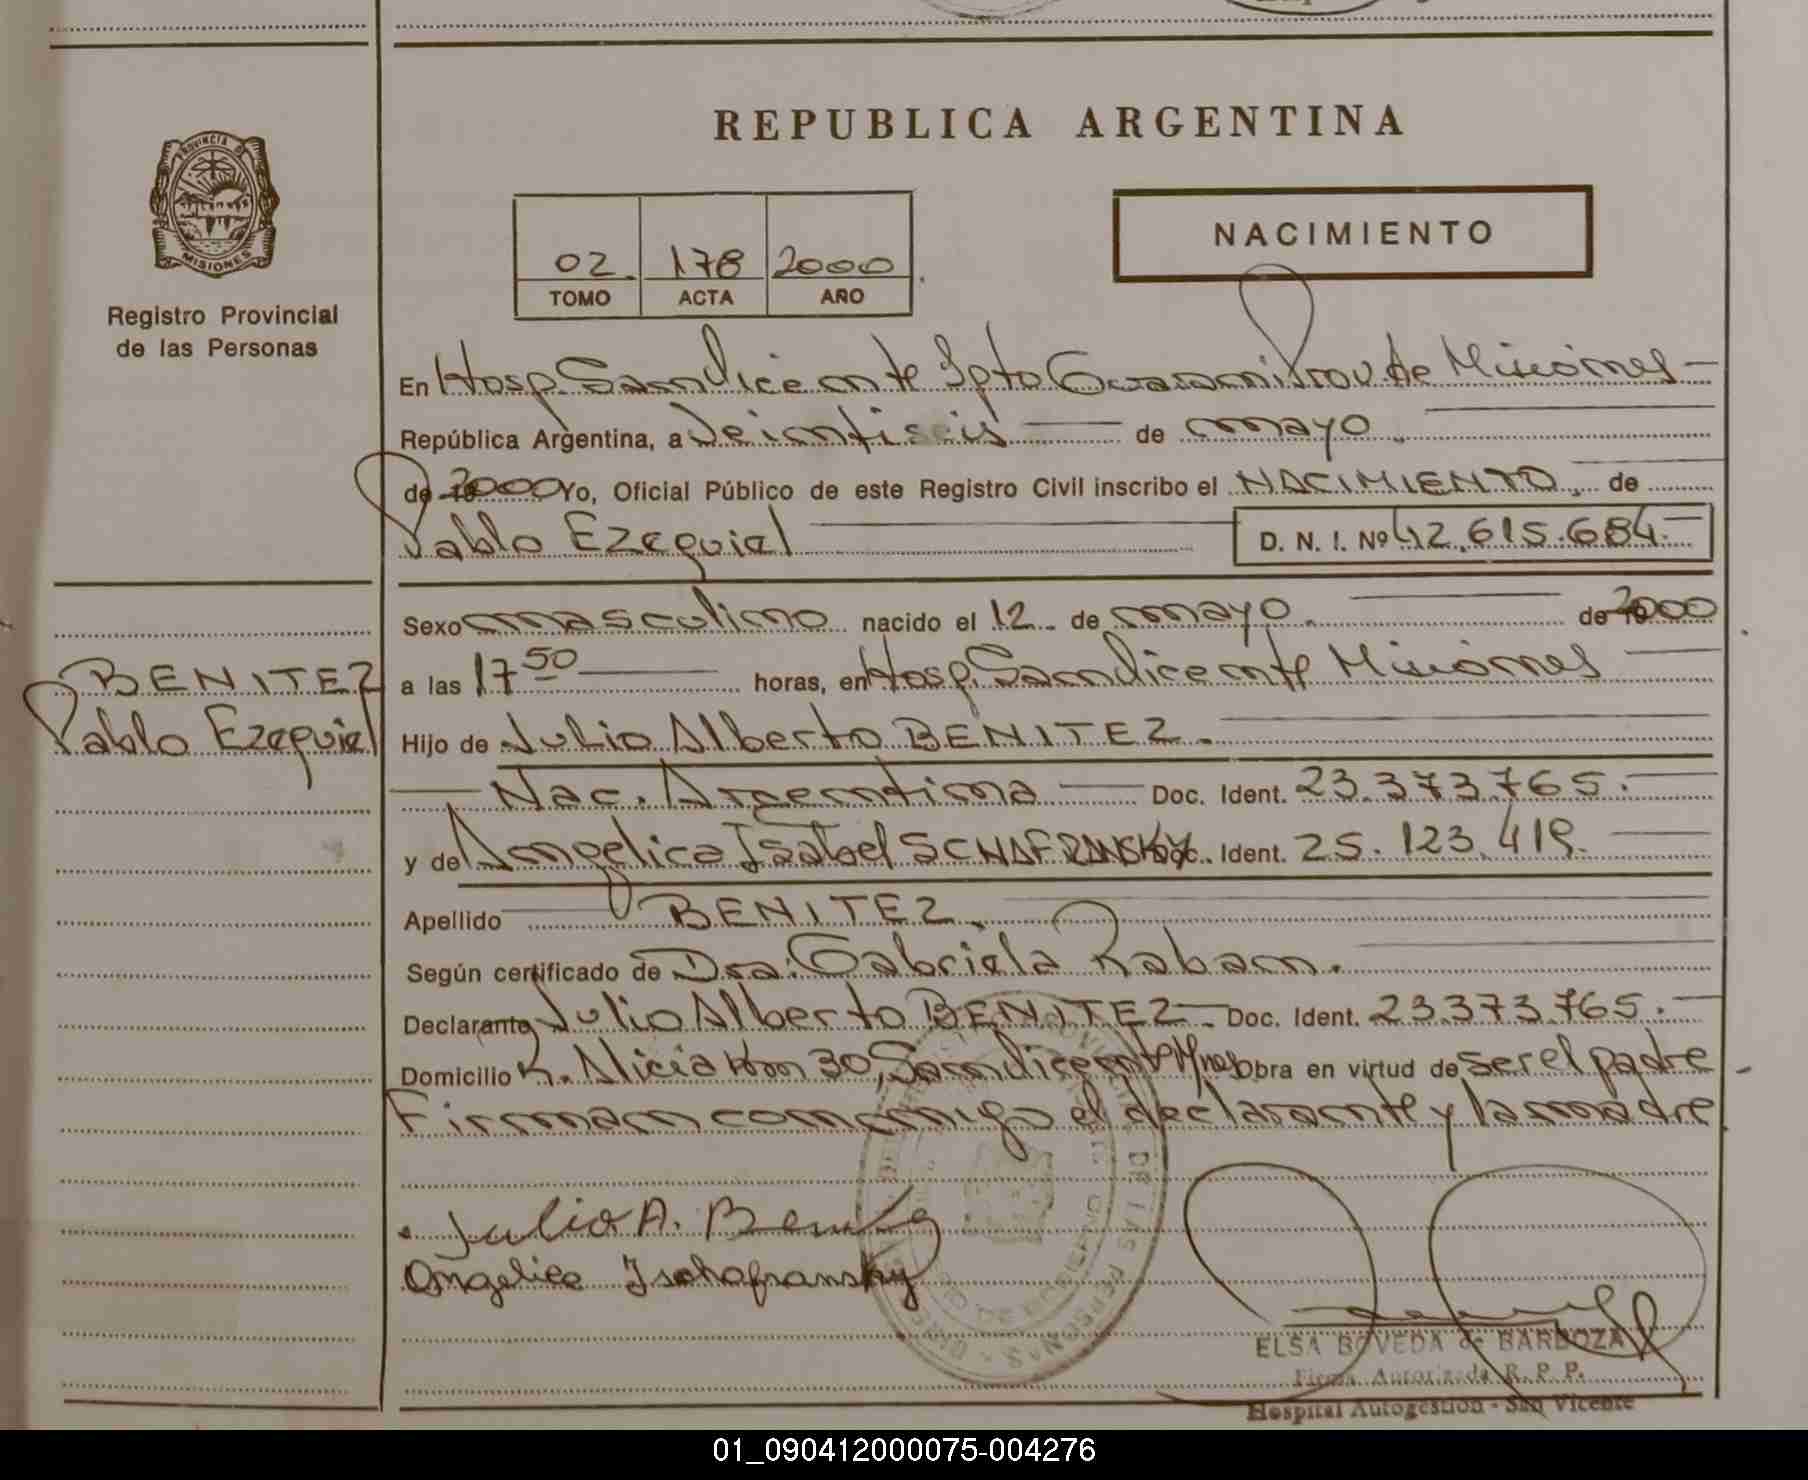 REPUBLICA ARGENTINA
PROVINCIA DE
MISIONES
Registro Provincial
de las Personas
NACIMIENTO
02 178 2000
TOMO ACTA AÑO
En Hosp. San Vicente Dpto Guaraní Prov. de Misiones
República Argentina, a Veintiseis de mayo
de 19 2000 Yo, Oficial Público de este Registro Civil inscribo el NACIMIENTO, de
Pablo Ezequiel D. N. I. Nº 42.615.684
Sexo masculino nacido el 12 de mayo de 19 2000
BENITEZ
Pablo Ezequiel
a las 17 50 horas, en Hosp. San Vicente Misiones
Hijo de Julio Alberto BENITEZ.
Nac. Argentina Doc. Ident. 23.373.765.
y de Angelica Isabel SCHAFRANSKY Doc. Ident. 25.123.419.
Apellido BENITEZ.
Según certificado de Dra. Gabriela Raban.
Declarante Julio Alberto BENITEZ Doc. Ident. 23.373.765.
Domicilio K. Alicia Km 30, San Vicente Mnes Obra en virtud de ser el padre
Firman conmigo el declarante y la madre
DE LAS PERSONAS
Julio A. Benitez
Angelica I schafransky
ELSA BOVEDA de BARBOZA
Firma Autorizada R. P. P.
Hospital Autogestion - San Vicente
01_090412000075-004276